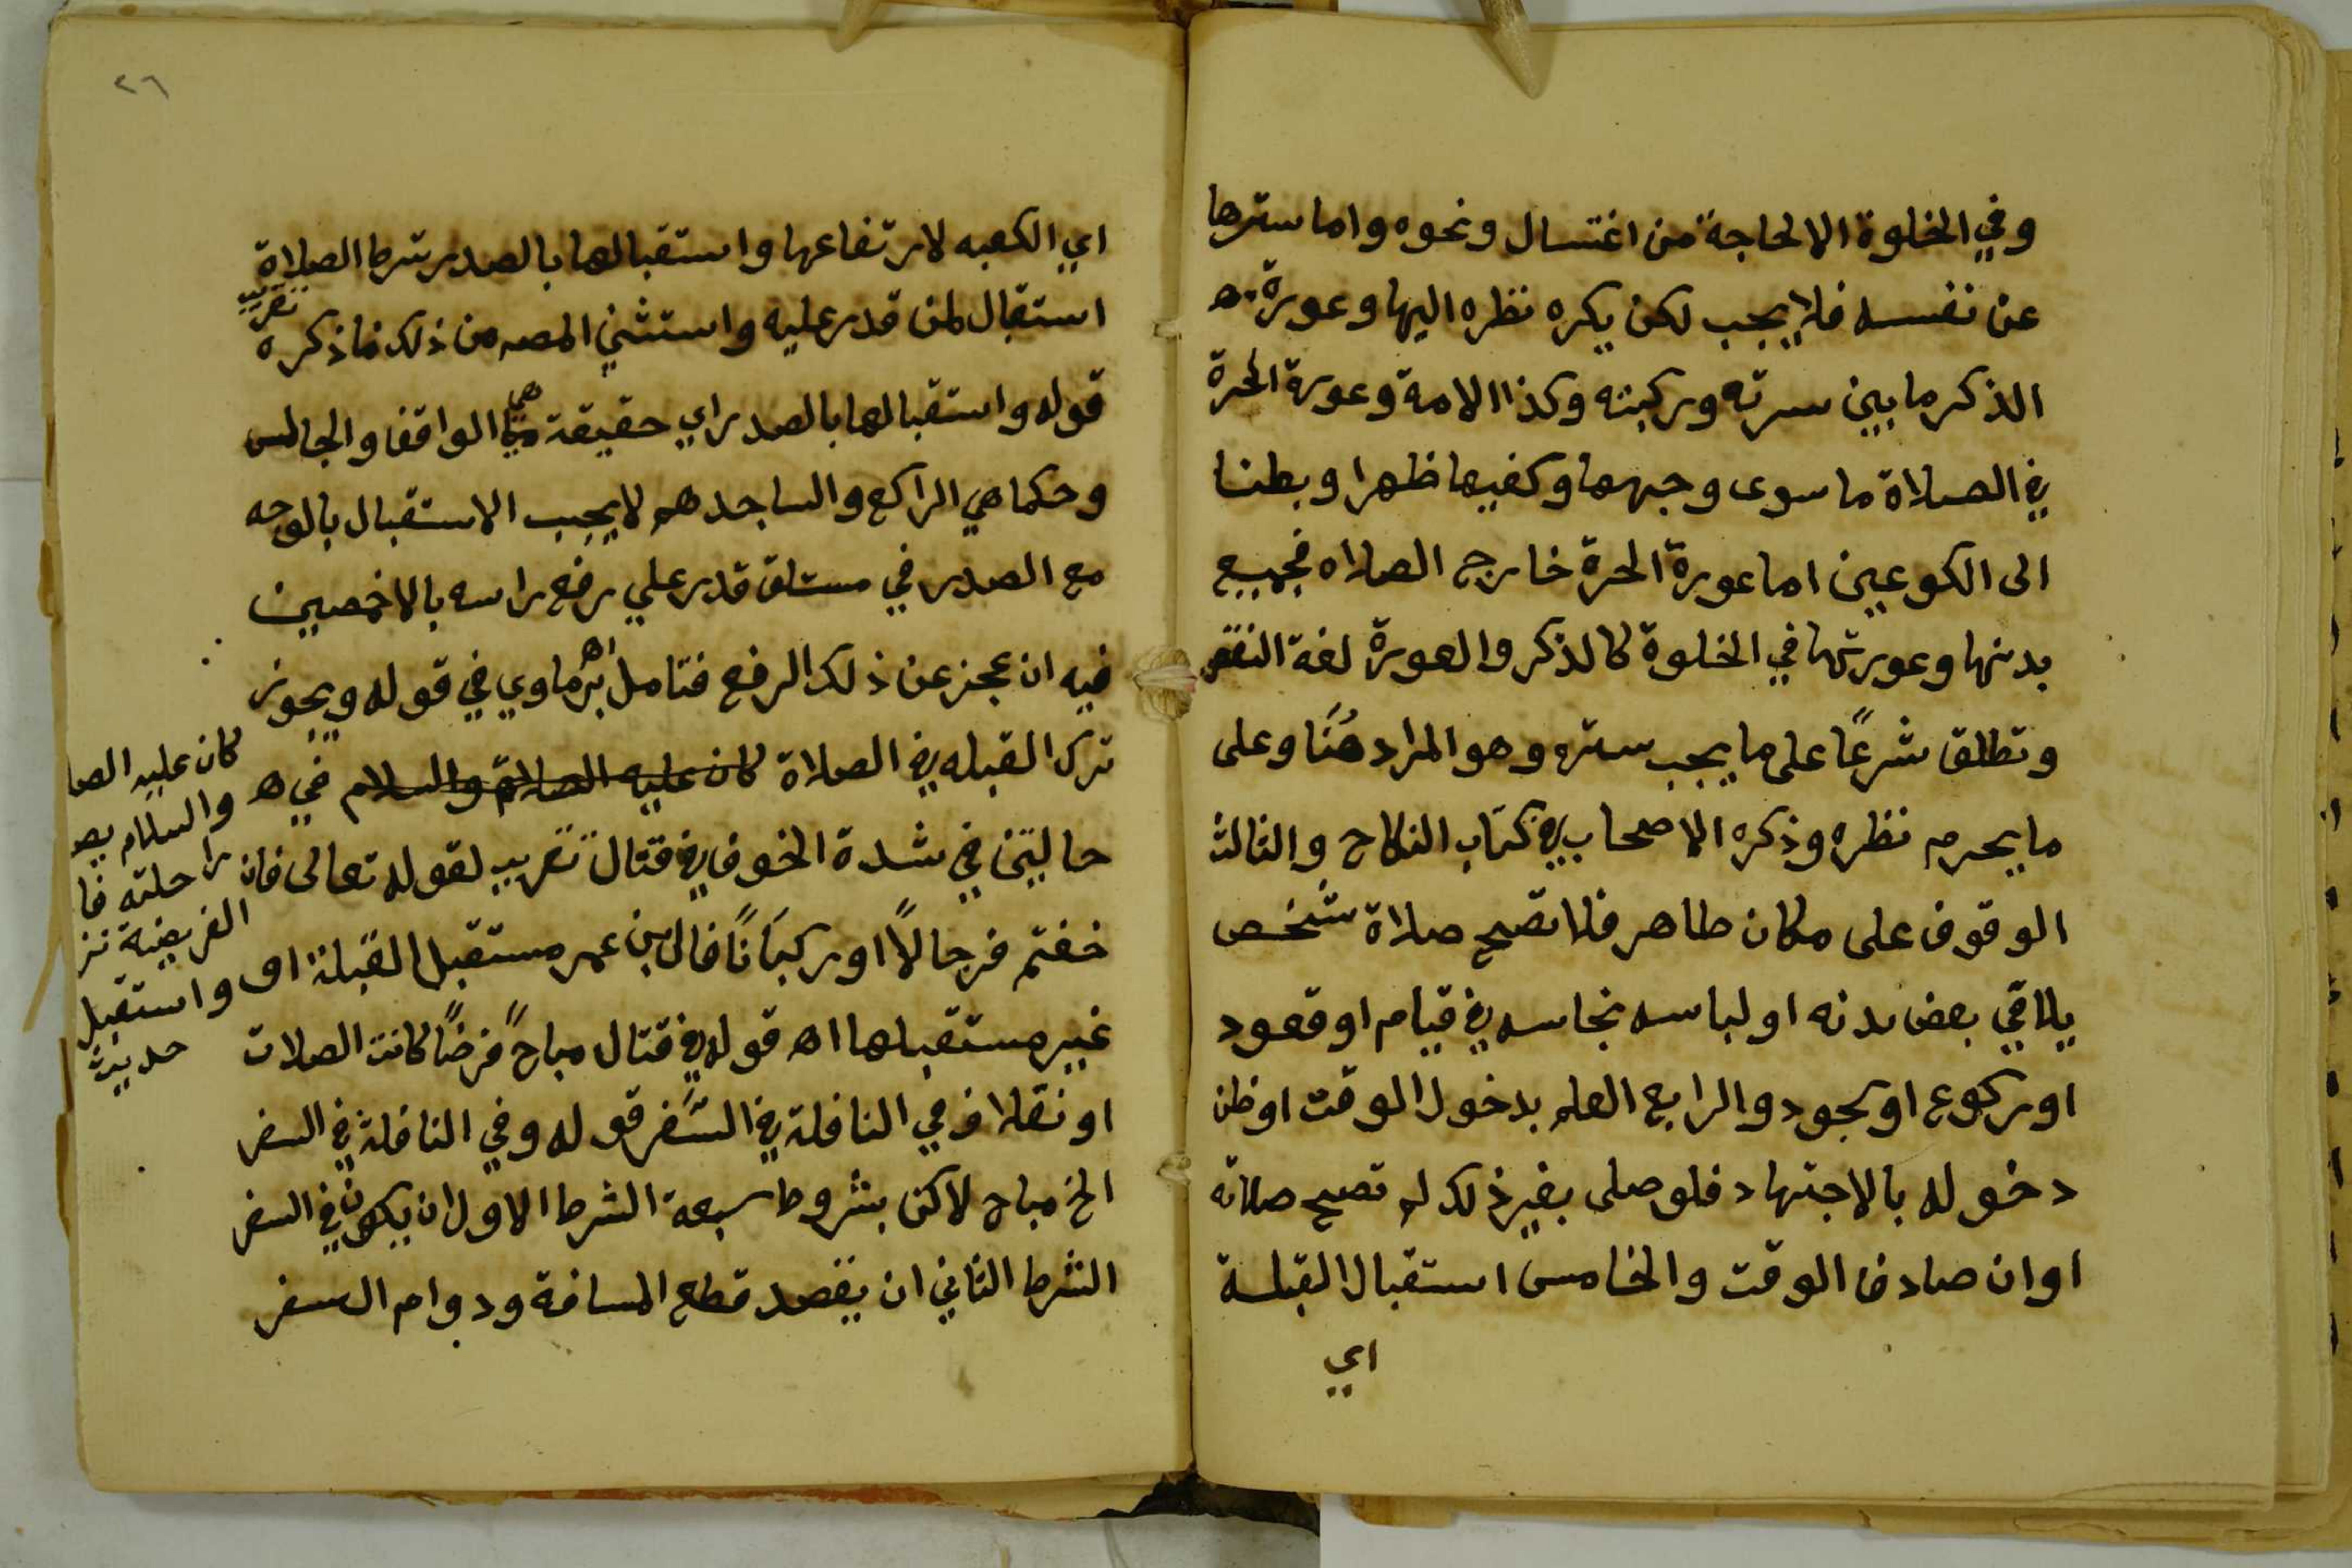 وفي الخلوة الا لحاجة من اغتسال ونحوه واما سترها
عن نفسه فلا يجب لكن يكره نظره اليها وعورة ه
الذكر ما بين سرته وركبته وكذا الامة وعورة الحرة
في الصلاة ما سوى وجهها وكفيها ظهرا وبطنا
الى الكوعين اما عورة الحرة خارج الصلاه فجميع
بدنها وعورتها في الخلوة كالذكر والعورة لغة النقص
وتطلق شرعًا على ما يجب ستره وهو المراد هُنَا وعلى
ما يحرم نظره وذكره الاصحاب في كتاب النكاح والثالث
الوقوف على مكان طاهر فلا تصح صلاة شخص
يلاقي بعض بدنه او لباسه نجاسه في قيام او قعود
او ركوع او سجود والرابع العلم بدخول الوقت او ظن
دخوله بالاجتهاد فلو صلى بغير ذلك لم تصح صلاته
اوان صادف الوقت والخامس استقبال القبلة
اي
٢٦
اي الكعبه لارتفاعها واستقبالها بالصدر شرط الصلاة
استقبال لمن قدر عليه واستثني المصـ من ذلك ما ذكره
تقريب
قوله واستقبالها بالصدر اي حقيقة هي الواقف والجالس
وحكما هي الراكع والساجد هم لا يجب الاستقبال بالوجه
مع الصدر في مستلق قدر علي رفع راسه بالاخمصين
فيه ان عجز عن ذلك الرفع فتامل اه برماوي في قوله ويجوز
ترك القبله في الصلاة كان عليه الصلاة والسلام في ه
حالتين في شدة الخوف في قتال تقريب لقوله تعالى فان
خفتم فرجالًا او ركبَانًا قال ابن عمر مستقبل القبلة او
غير مستقبلها اه قوله في قتال مباح فرضًا كانت الصلات
او نفلا وفي النافلة في السَّفر قوله وفي النافلة في السفر
الخ مباح لاكن بشروط سبعة الشرط الاول ان يكون في السفر
الشرط الثاني ان يقصد قطع المسافة ودوام السفر
كان عليه الصلا
والسلام يصـ
راحلته فا
الفريضة نز
واستقبل
حديث